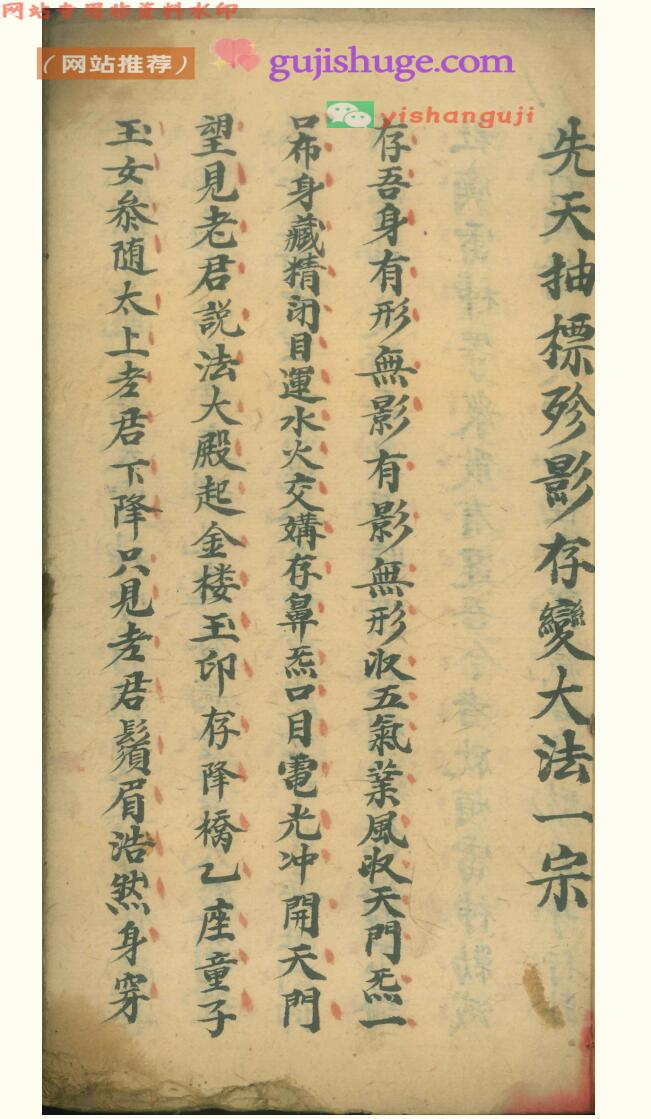 网站专用非资料水印
（网站推荐）
gujishuge.com
yishanguji
先天抽標殄影存變大法一宗
存吾身有形無影有影無形收五氣業風收天門炁一
口布身藏精闭目運水火交媾存鼻炁口目電光冲開天門
望見老君説法大殿起金楼玉印存降橋乙座童子
玉女叅随太上老君下降只見老君鬚眉浩然身穿